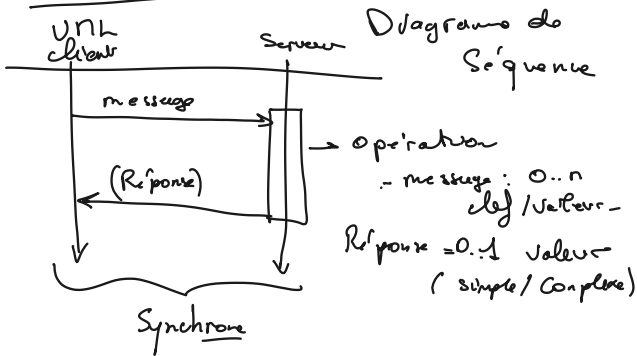 UML
client
Serveur
Diagramme de
Séquence
message
→ Opération
- message : 0..n
clef/valeur
(Réponse)
Réponse = 0..1 valeur
(simple/Complexe)
Synchrone